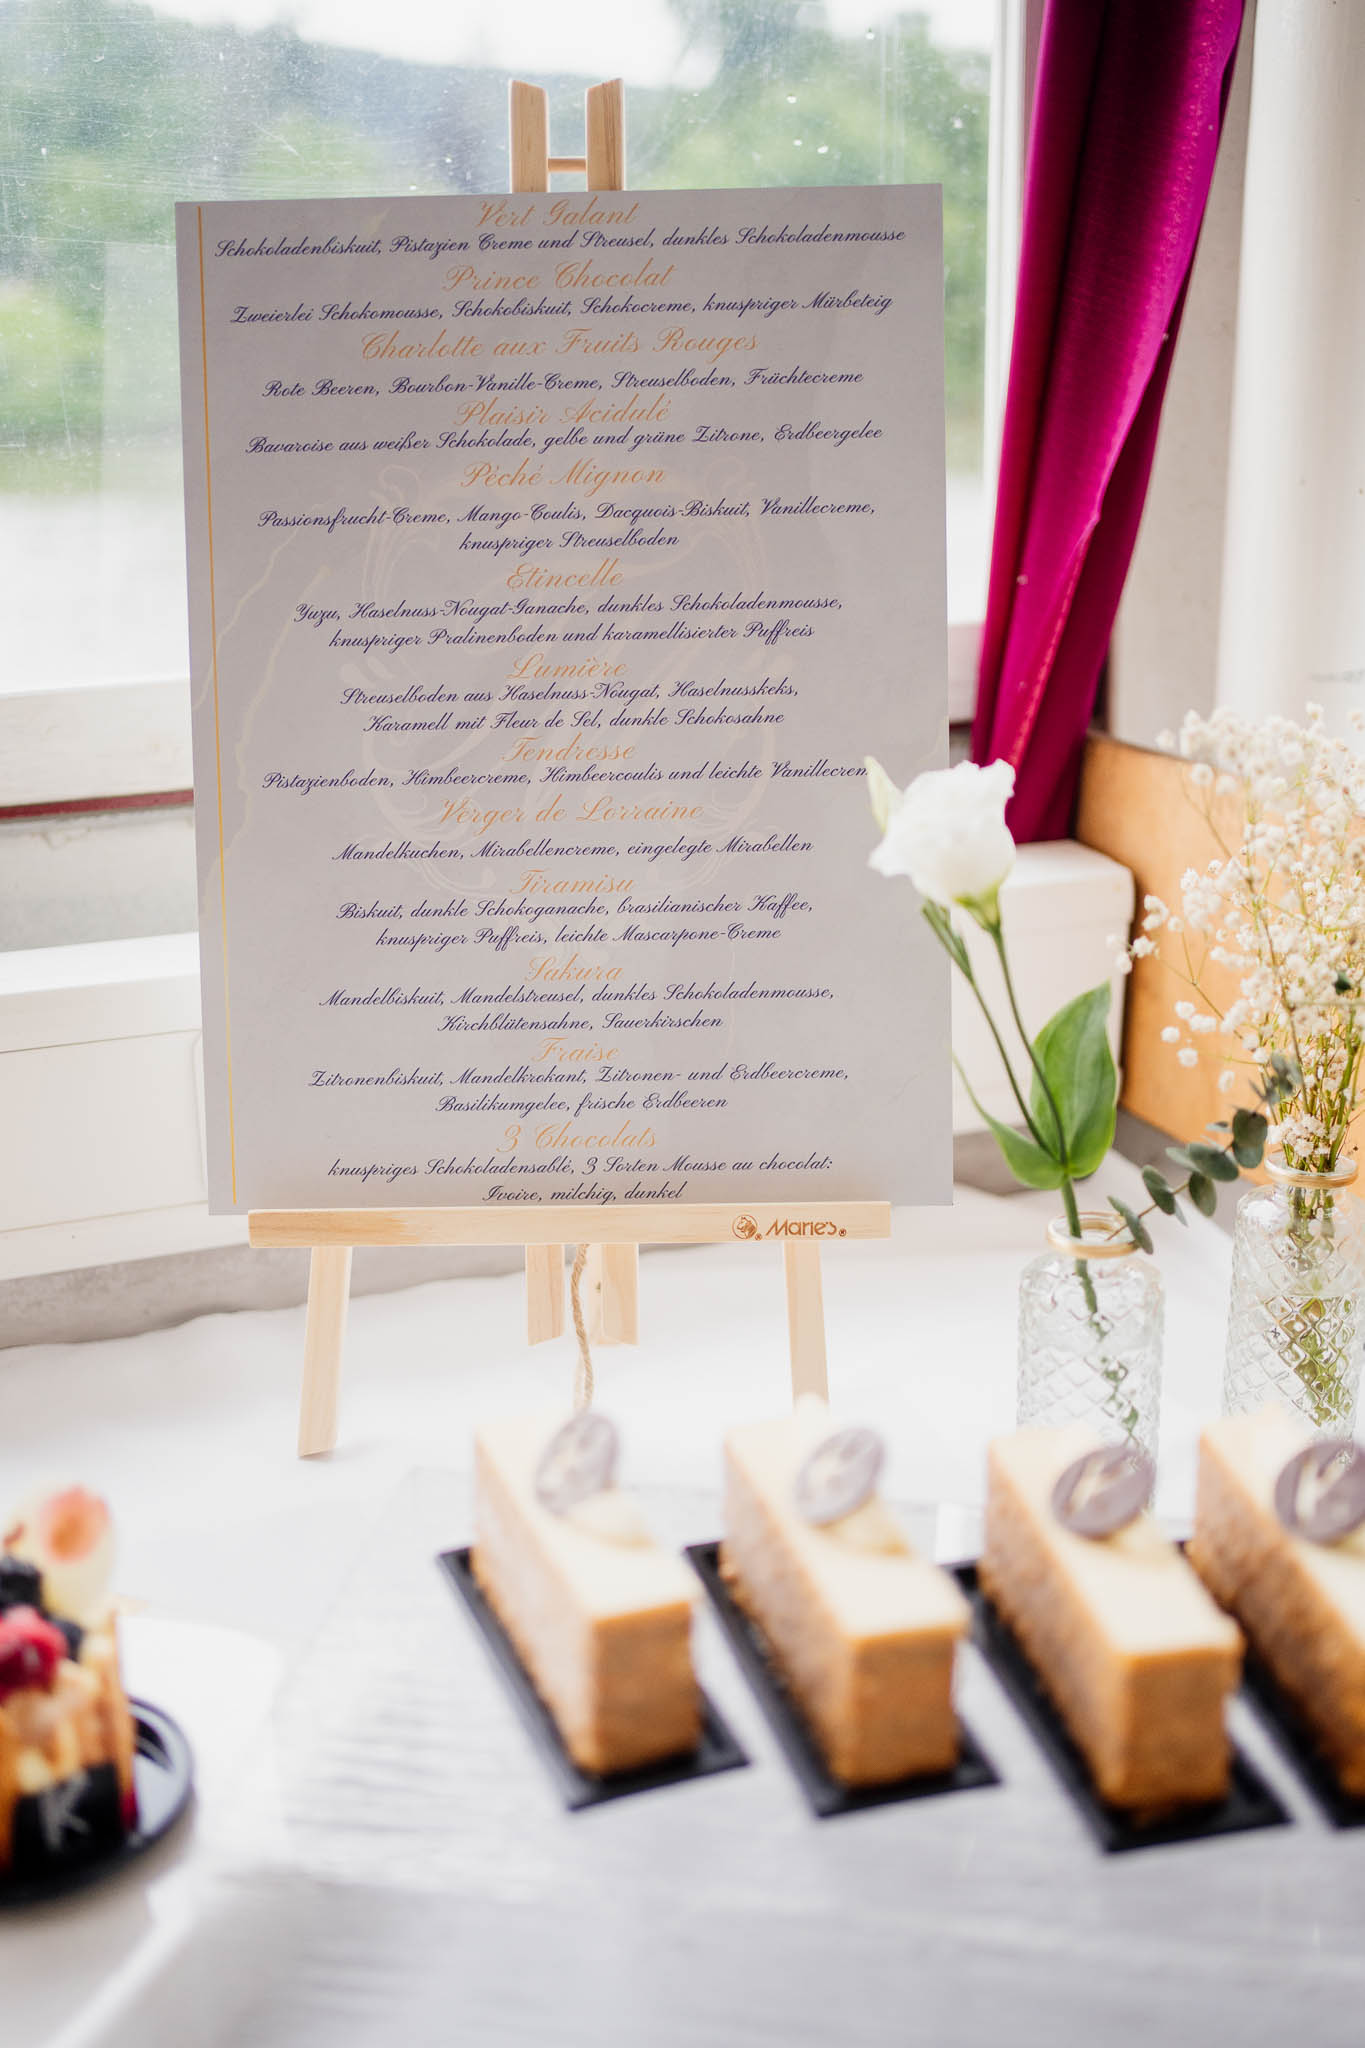 Vert Galant
Schokoladenbiskuit, Pistazien Creme und Streusel, dunkles Schokoladenmousse
Prince Chocolat
Zweierlei Schokomousse, Schokobiskuit, Schokocreme, knuspriger Mürbeteig
Charlotte aux Fruits Rouges
Rote Beeren, Bourbon-Vanille-Creme, Streuselboden, Früchtecreme
Plaisir Acidulé
Bavaroise aus weißer Schokolade, gelbe und grüne Zitrone, Erdbeergelee
Péché Mignon
Passionsfrucht-Creme, Mango-Coulis, Dacquois-Biskuit, Vanillecreme,
knuspriger Streuselboden
Etincelle
Yuzu, Haselnuss-Nougat-Ganache, dunkles Schokoladenmousse,
knuspriger Pralinenboden und karamellisierter Puffreis
Lumière
Streuselboden aus Haselnuss-Nougat, Haselnusskeks,
Karamell mit Fleur de Sel, dunkle Schokosahne
Tendresse
Pistazienboden, Himbeercreme, Himbeercoulis und leichte Vanillecrem
Verger de Lorraine
Mandelkuchen, Mirabellencreme, eingelegte Mirabellen
Tiramisu
Biskuit, dunkle Schokoganache, brasilianischer Kaffee,
knuspriger Puffreis, leichte Mascarpone-Creme
Sakura
Mandelbiskuit, Mandelstreusel, dunkles Schokoladenmousse,
Kirchblütensahne, Sauerkirschen
Fraise
Zitronenbiskuit, Mandelkrokant, Zitronen- und Erdbeercreme,
Basilikumgelee, frische Erdbeeren
3 Chocolats
knuspriges Schokoladensablé, 3 Sorten Mousse au chocolat:
Ivoire, milchig, dunkel
Marie's®